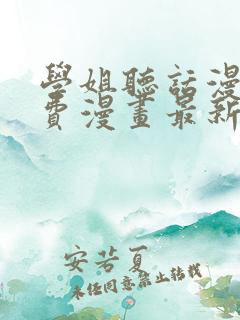 學姐聽話漫
費漫畫最新
安若夏
未经同意禁止转载